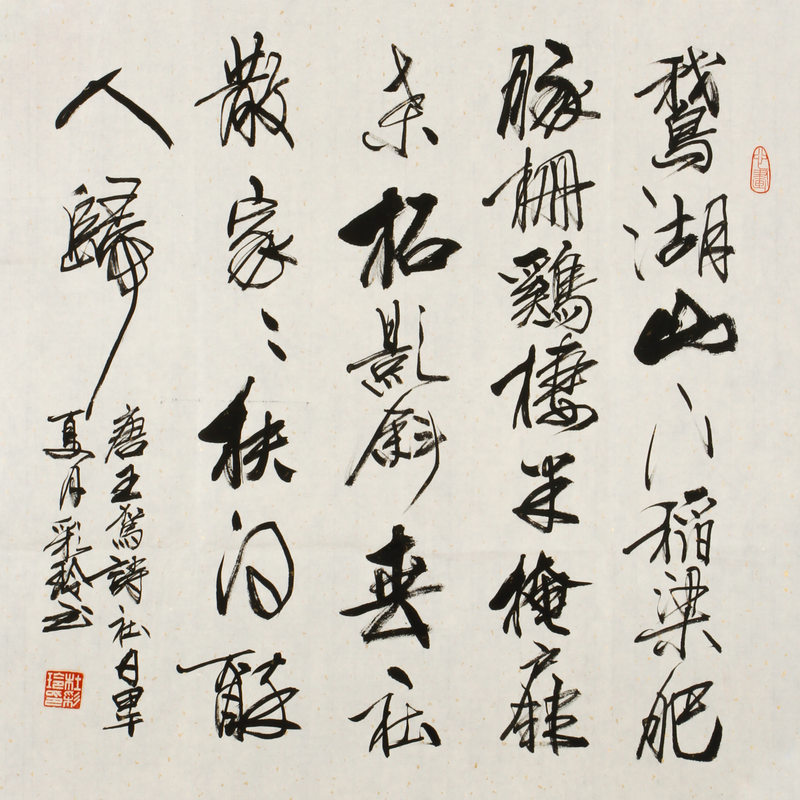 鵝湖山下稻粱肥
豚柵鷄棲半掩扉
桑柘影斜春社
散家〻扶得醉
人歸
唐王駕詩社日
夏月彩玲書
杜彩玲印